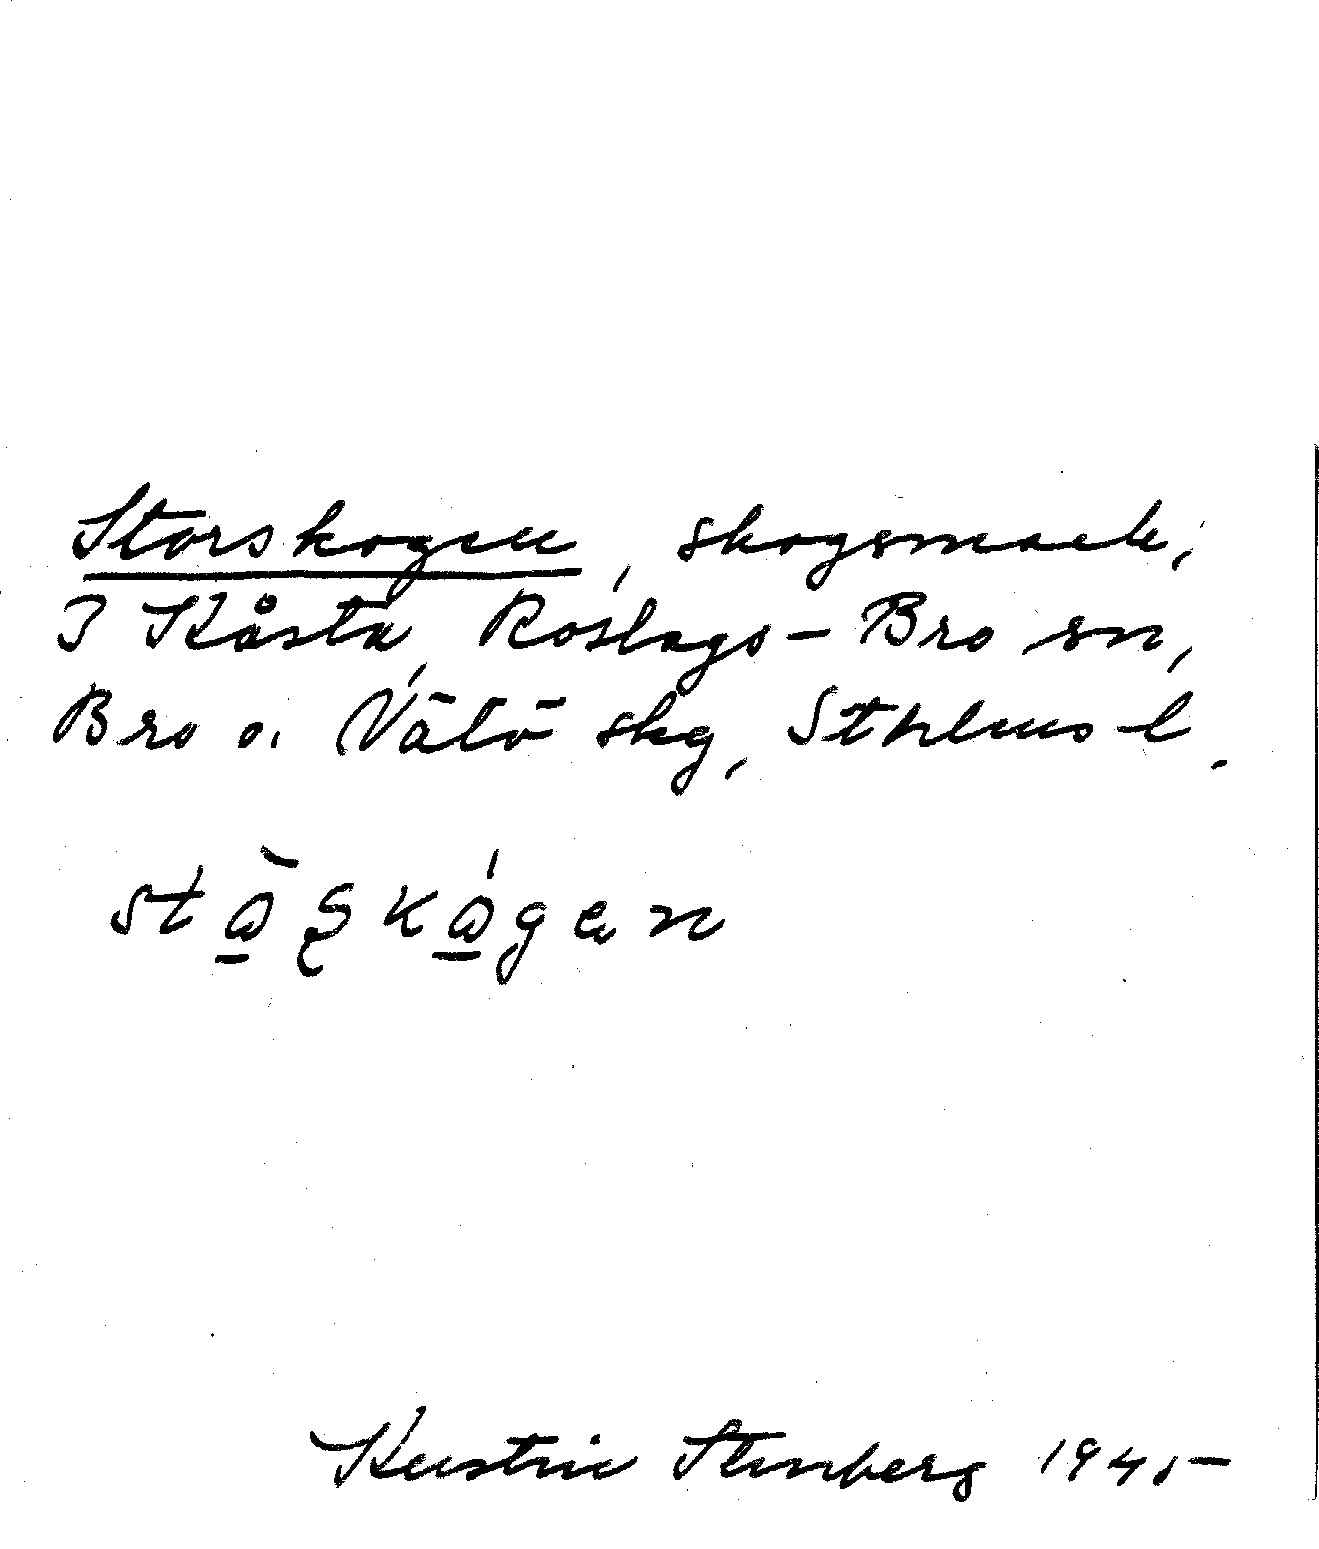 Storskogen, skogsmark,
I Kåsta, Roslags-Bro sn,
Bro o. Vätö skg, Sthlms l.
Kerstin Stenberg 1945